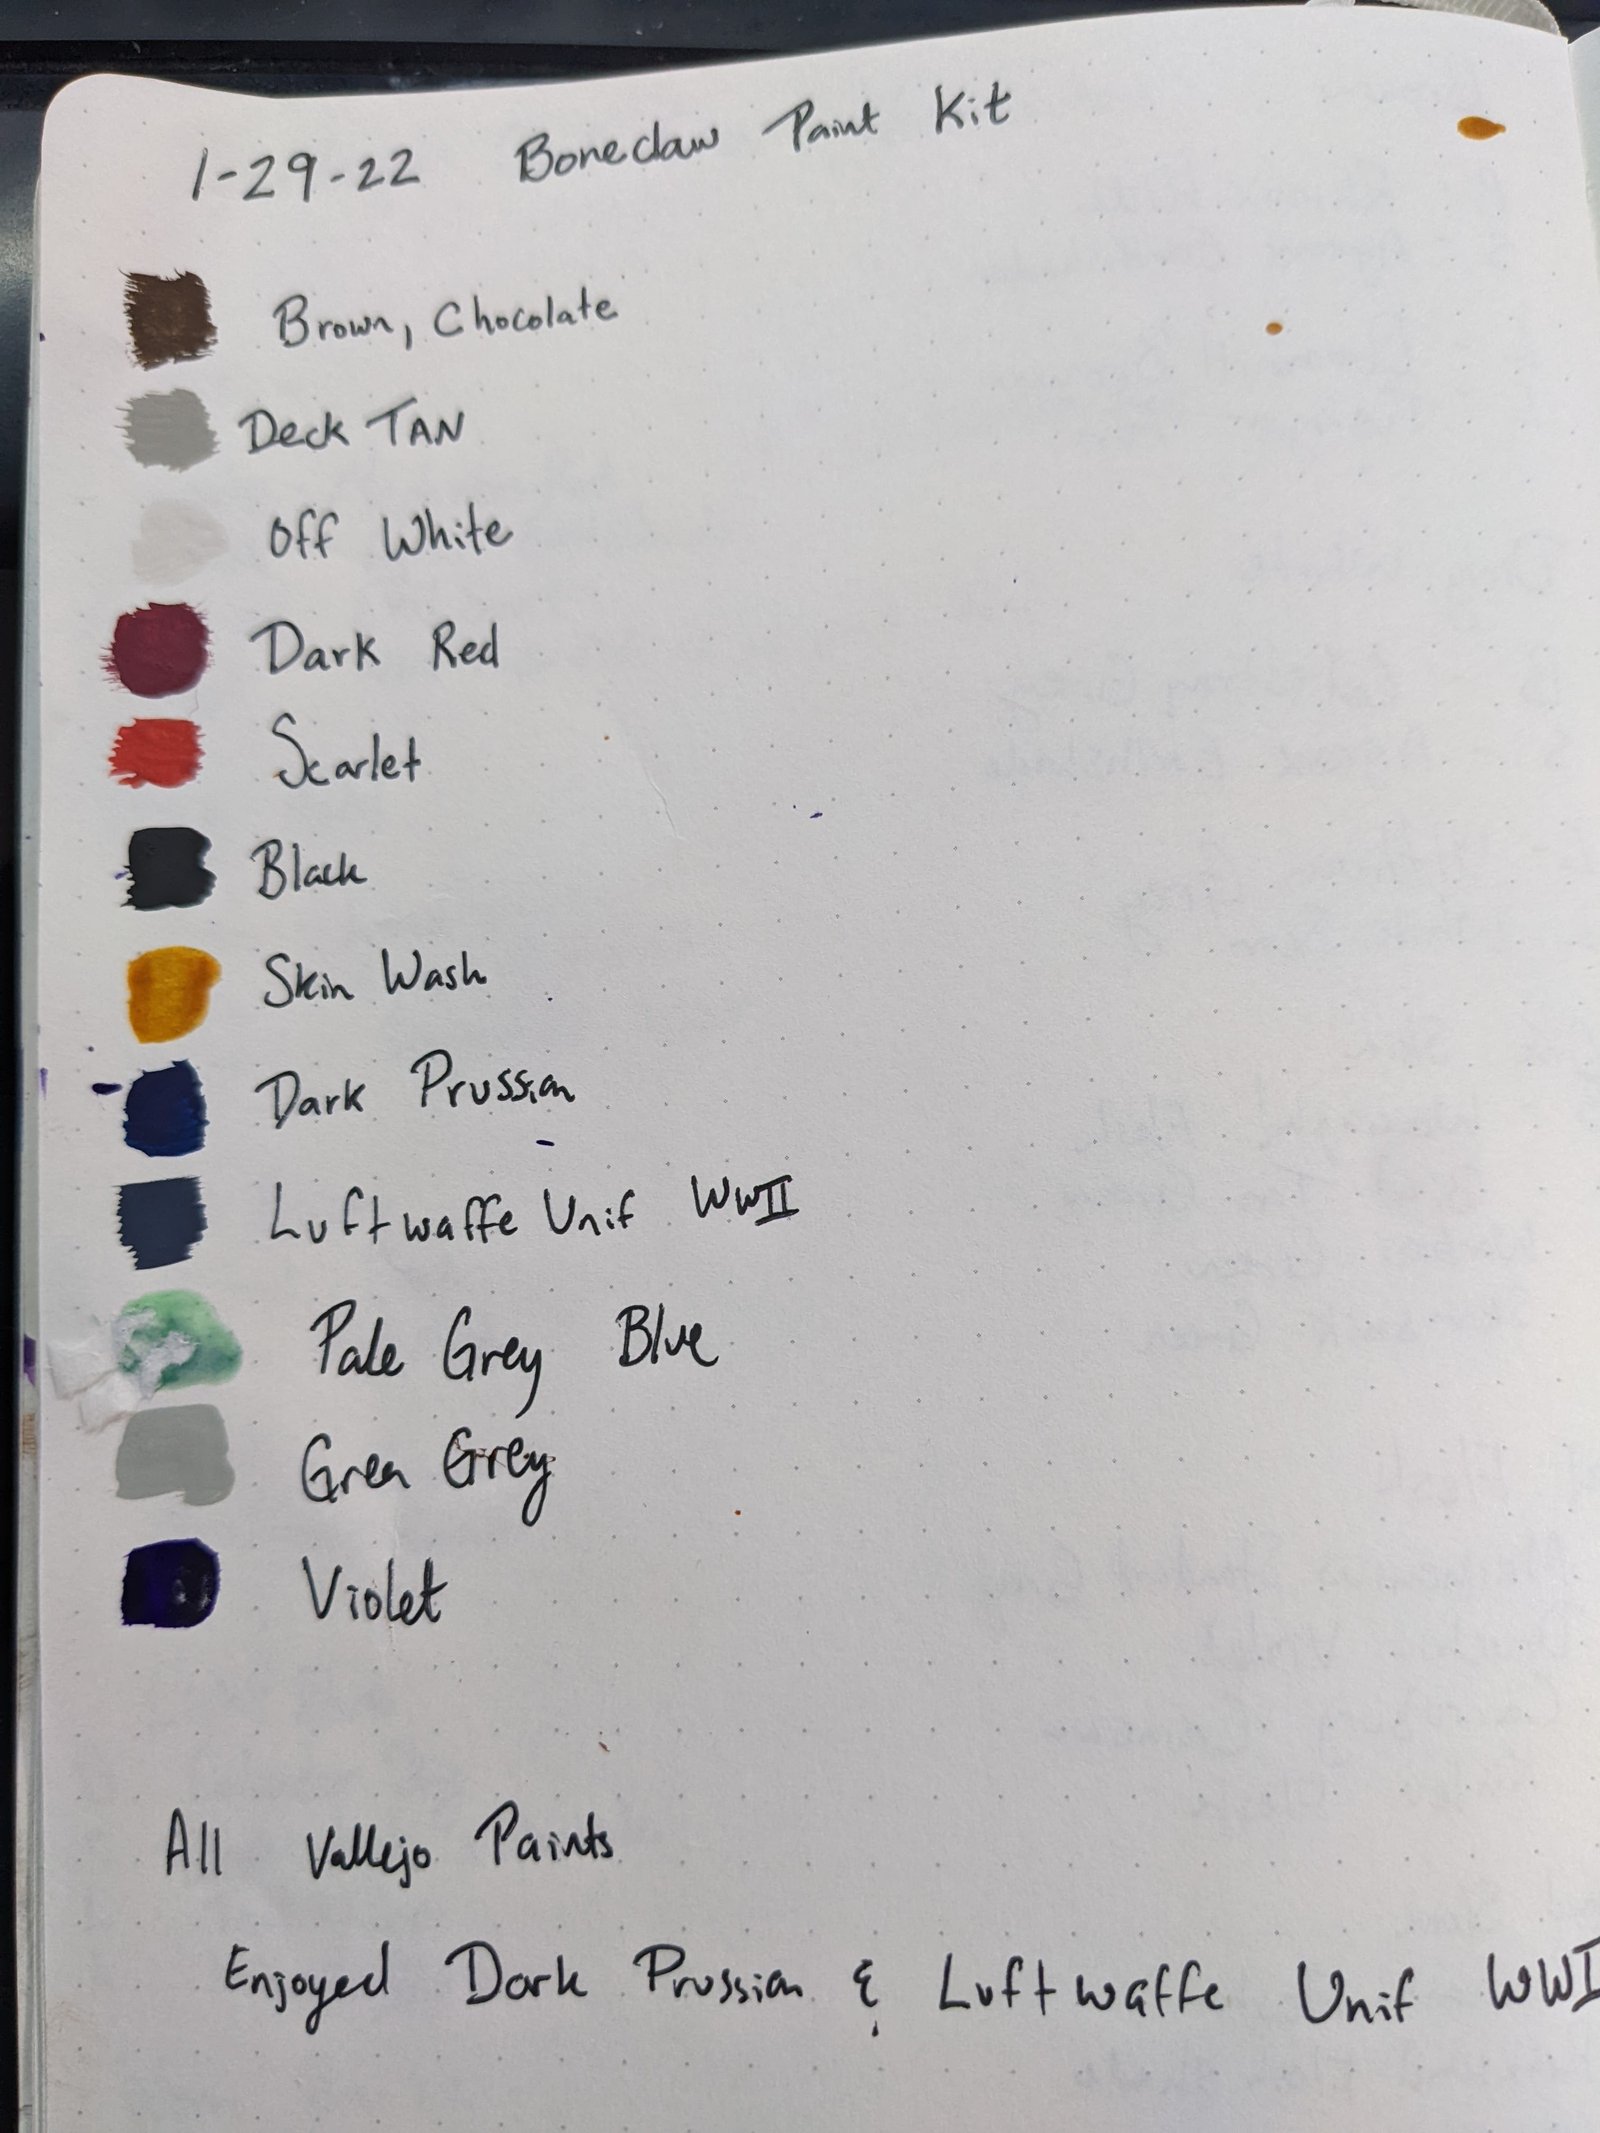 1-29-22 Boneclaw Paint Kit
Brown, Chocolate
Deck TAN
Off White
Dark Red
Scarlet
Black
Skin Wash
Dark Prussian
Luftwaffe Unif WWII
Pale Grey Blue
Green Grey
Violet
All Vallejo Paints
Enjoyed Dark Prussian & Luftwaffe Unif WWI